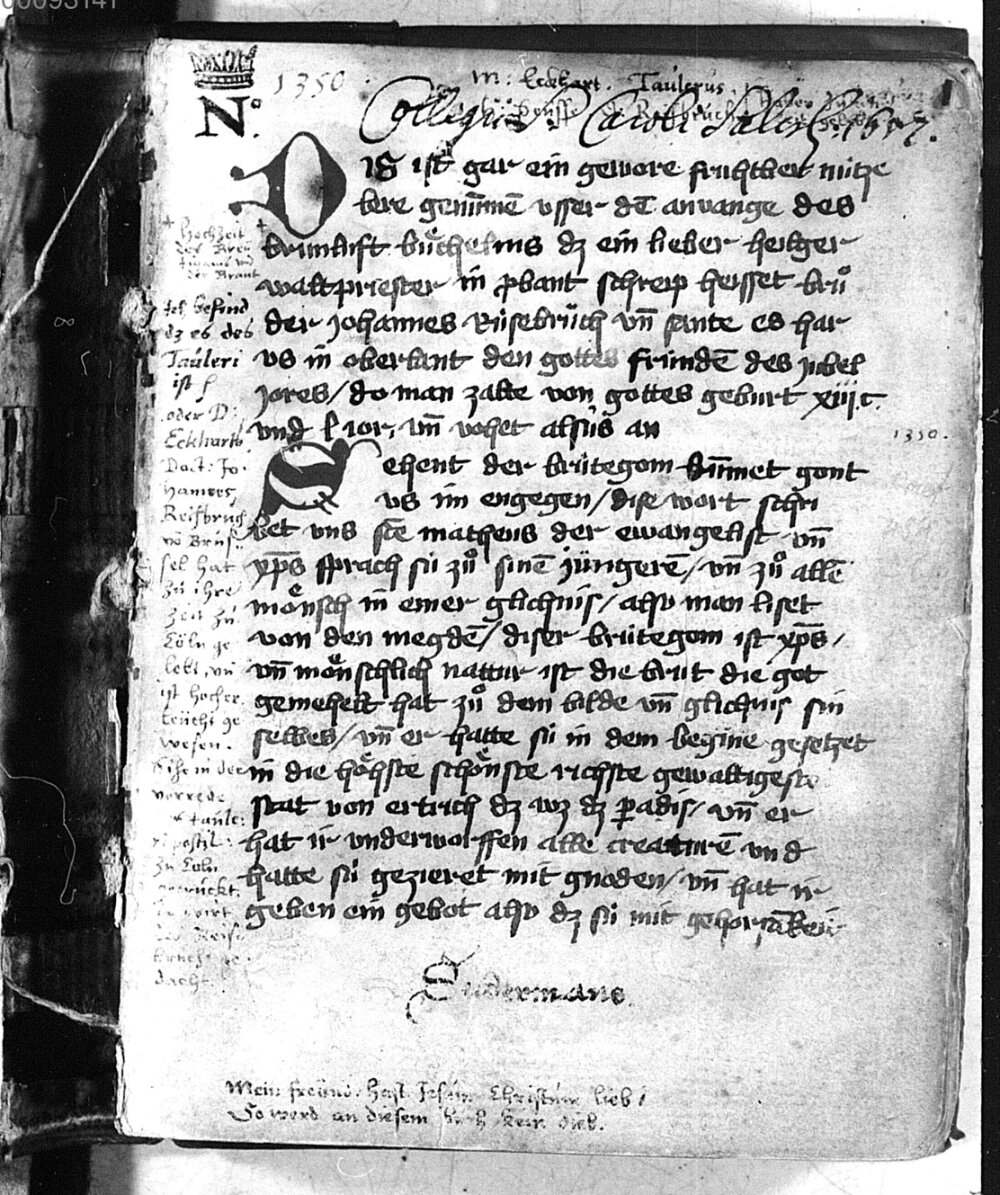 00093141
N°.
1350
M: Eckhart. Taulerus
Collegij Caroli 1607.
1
Dis ist gar ein gewore fruhtber nütze
bere genūmē usser dē anvange des
brunluft bůchelins dz ein lieber heilger
waltpriester in probant schreip heisset brů
der Johannes Rüsebrůch vn̄ sante es har
vs in oberlant den gottes frúndē des jubel
jores / do man zalte von gottes geburt xiijc.
vnd l jor, vn̄ vohet alsus an
Sehent der brútegom kūmmet gont
vs im engegen / dise wort schri
bet vns ste matheus der ewangelist vn̄
xp̄s sprach sú zů sinē júngerē / vn̄ zů allē
mönsch in einer glichnis / also man liset
von den megdē / diser brútegom ist xp̄s /
vn̄ mönschlich nattur ist die brut die got
gemehelt hat zů dem bilde vn̄ glichnis sin
selbes / vn̄ er hatte sú in dem begine gesetzet
in die höhste schönste richste gewaltigeste
stat von ertrich dz wz dz padis / vn̄ er
hat ir vnderworffen alle creaturē vnd
hatte sú gezieret mit gnoden / vn̄ hat ir
geben ein gebot also dz sú mit
+ Hochzeit +
des Breü
tigams vnd
der Braut
Ich befind
dz es des
Tauleri
ist
oder D:
Eckharts
Doct: Jo-
hannes
Reisbruch
vō Brüs-
sel hat
zu ihrē
Zeit zu
Cöln ge
lebt, vn̄
ist hocher
leücht ge
wesen.
Sihe in der
vorrede
taule:
postil:
zu Cöln
getruckt
1350.
Sudermans
Mein freünd. Hast Jesum Christum lieb,
So werd an diesem buch kein dieb.